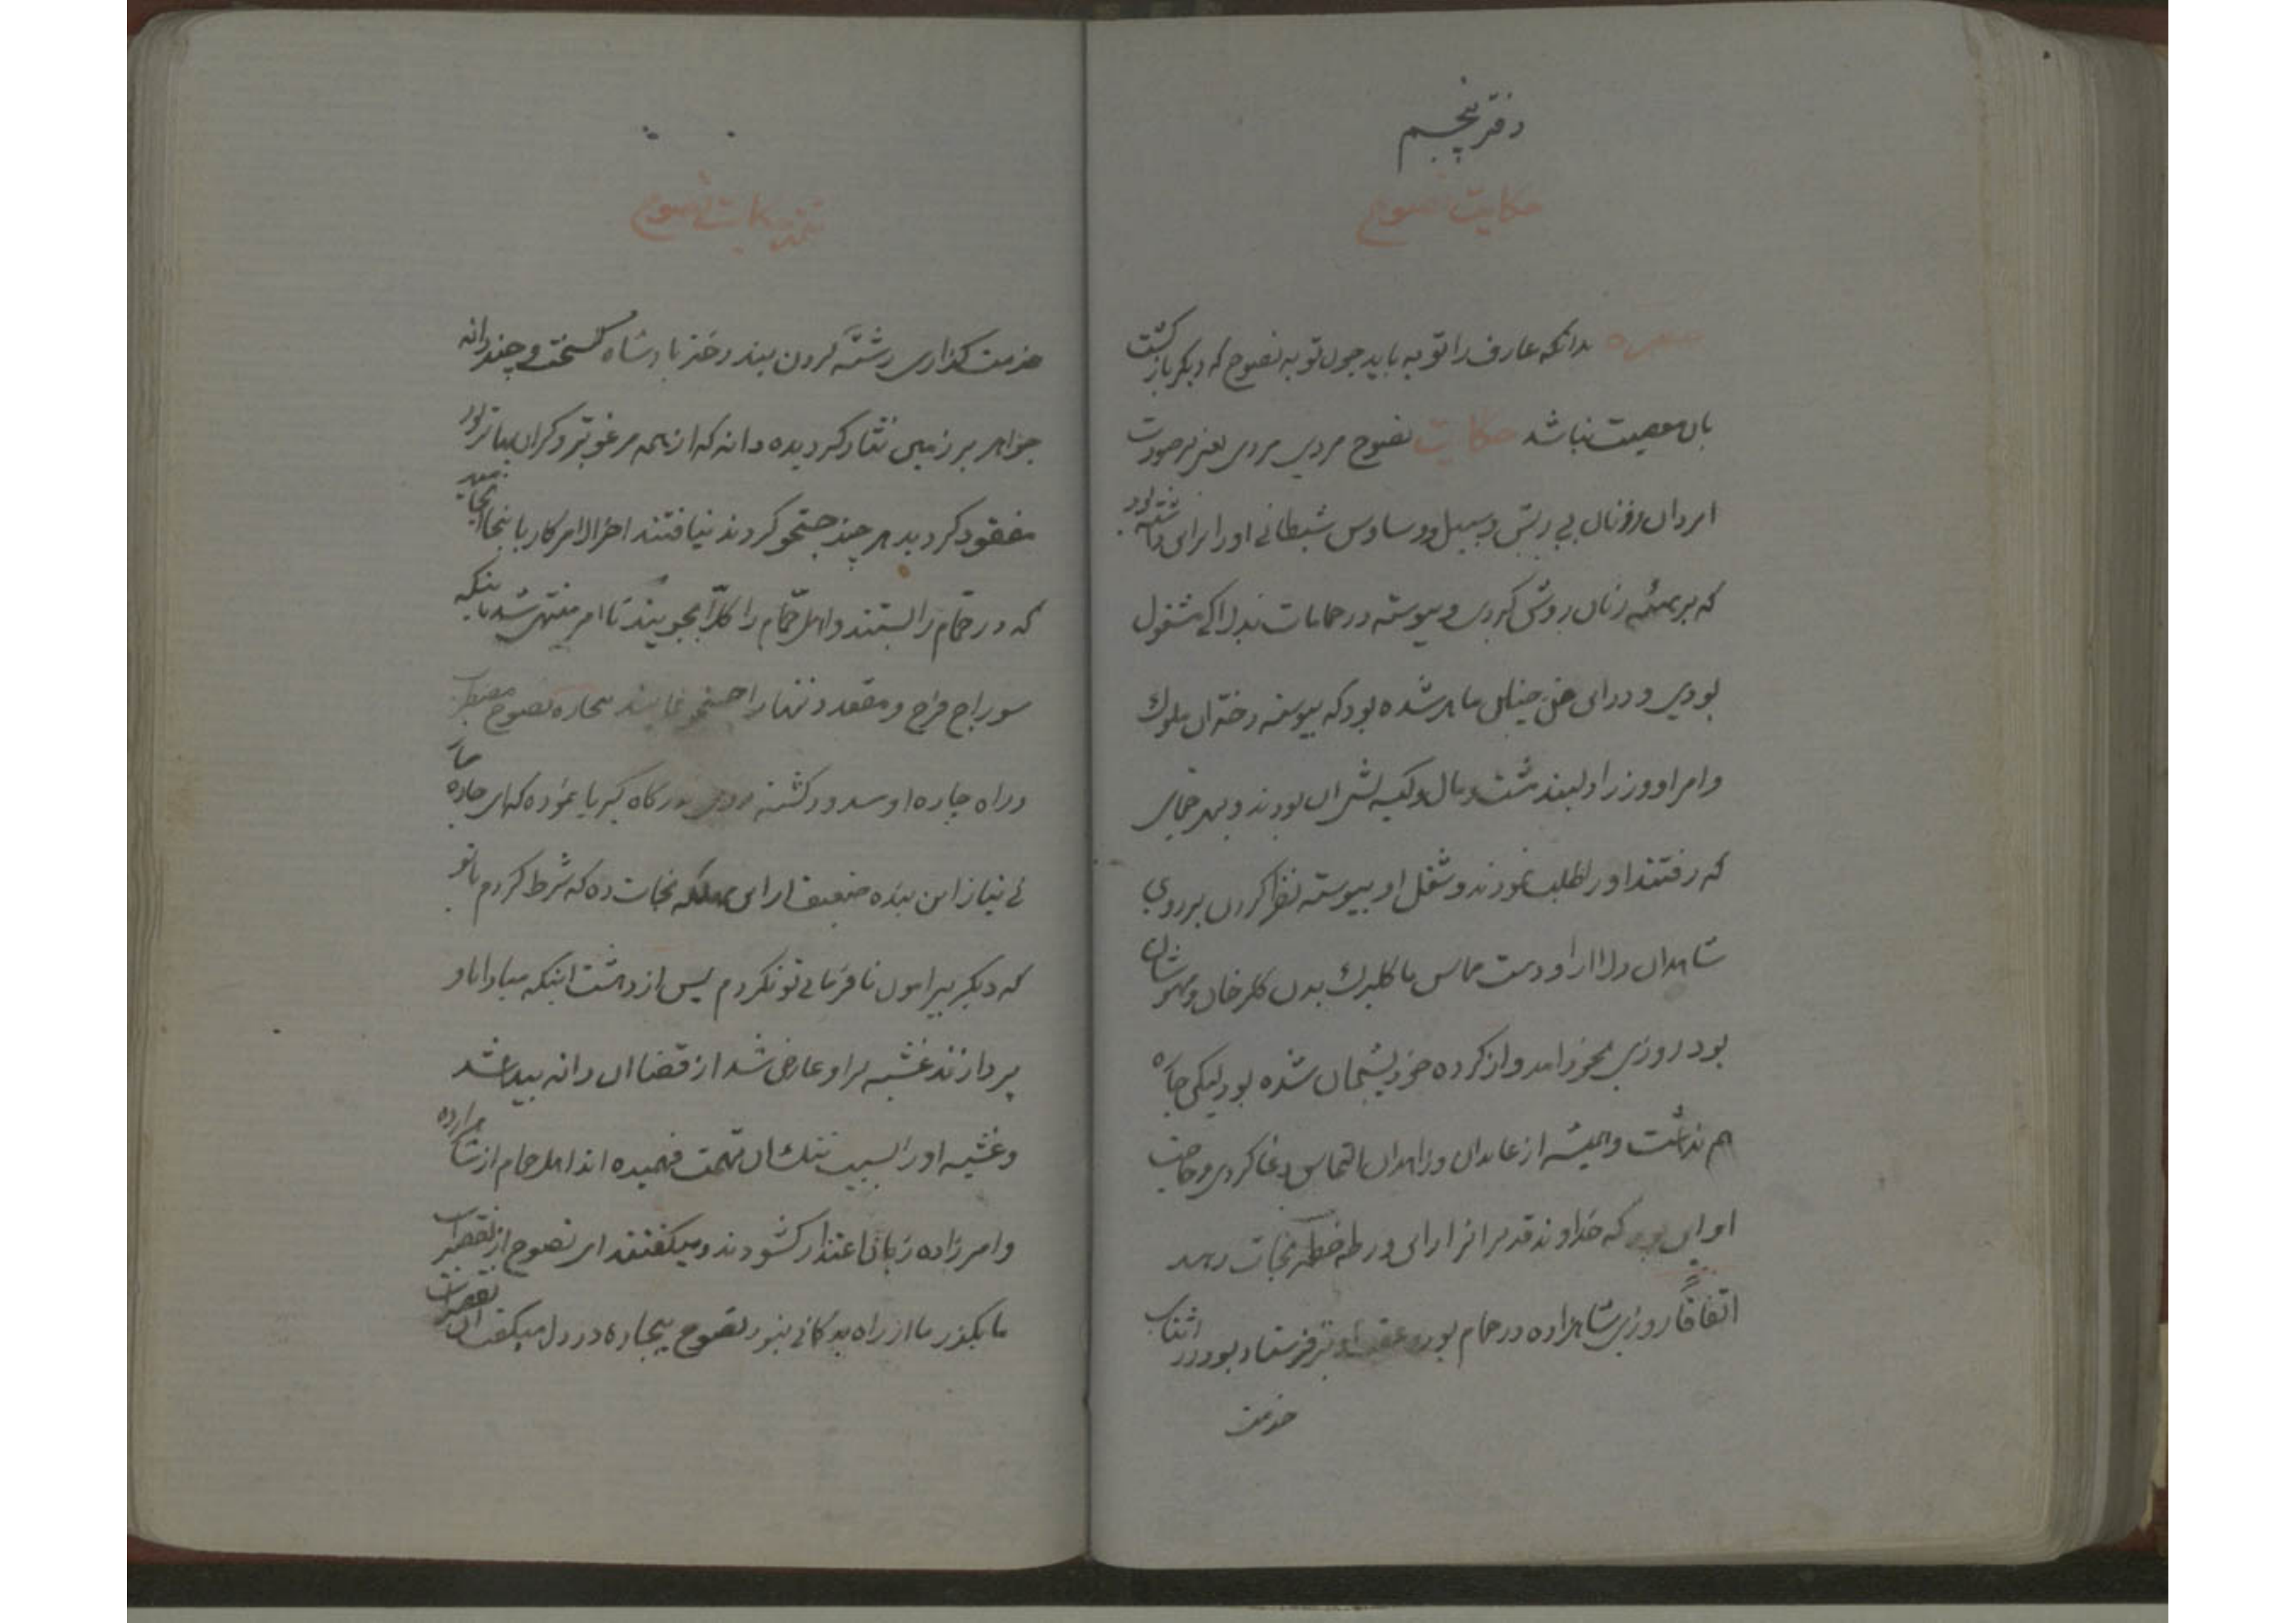 دفتر پنجم
حکایت نصوح
بدانکه عارف را توبه باید چون توبه نصوح که دیگر بازگشت
بان معصیت نباشد حکایت نصوح مردی بردی یعنی بر صورت
امردان و زنان بی ریش و سبیل و وساوس شیطانی او را برای داشته بود
که بر همئه زنان روشی کردی و پیوسته در حمامات بدلاکی مشغول
بودی و در این فن چنان ماهر شده بود که پیوسته دختران ملوک
وامرا و وزرا و کیسه کشی ان بودند و بهر حمامی
که رفتند او را طلب نمودند و شغل او پیوسته نظر کردن بر روی
شاهدان دلارا و دست مماس با کلبرک بدن کلرخان و مهوشان
بود روزی بخود امد و از کرده خود پشیمان شده بود لیکن چاره
هم نداشت و همیشه از عابدان و زاهدان التماس دعا کردی و حاجت
او این بود که خداوند قدیر انرا از این ورطه خطیر نجات دهد
اتفاقا روزی شاهزاده در حمام بود و عقب او نیز فرستاد بود در اثنای
خدمت
تتمه حکایت نصوح
خدمت کذاری رشته کردن بند دختر پادشاه کسیخت و چند دانه
جواهر بر زمین نثار کردیده دانه که از همه مرغوبتر و کران بهاتر بود
مفقود کردید هر چند جستجو کردند نیافتند اخر الامر کار باینجا انجامید
که در حمام را بستند و اهل حمام را کلا بجویند تا امر منتهی شد باینکه
سوراخ فرج و مقعد زنها را جستجو نمایند بیچاره نصوح مضطرب
و راه چاره او مسدود کشته روی بدرکاه کبریا نموده که ای چاره ساز
بی نیاز این بنده ضعیف را از این مهلکه نجات ده که شرط کردم با تو
که دیکر پیرامون نافرمانی تو نکردم پس از دهشت اینکه مبادا باو
پردازند غشیه بر او عارض شد از قضا ان دانه پیدا شد
و غشیه او را بسبب ننک ان تهمت فهمیده اند اهل حمام از شاهزاده
و امرزاده زبان اعتذار کشودند و میکفتند ای نصوح از تقصیر
ما بکذر ما از راه بدکمانی نبود نصوح بیچاره در دل میکفت ان تقصیرات